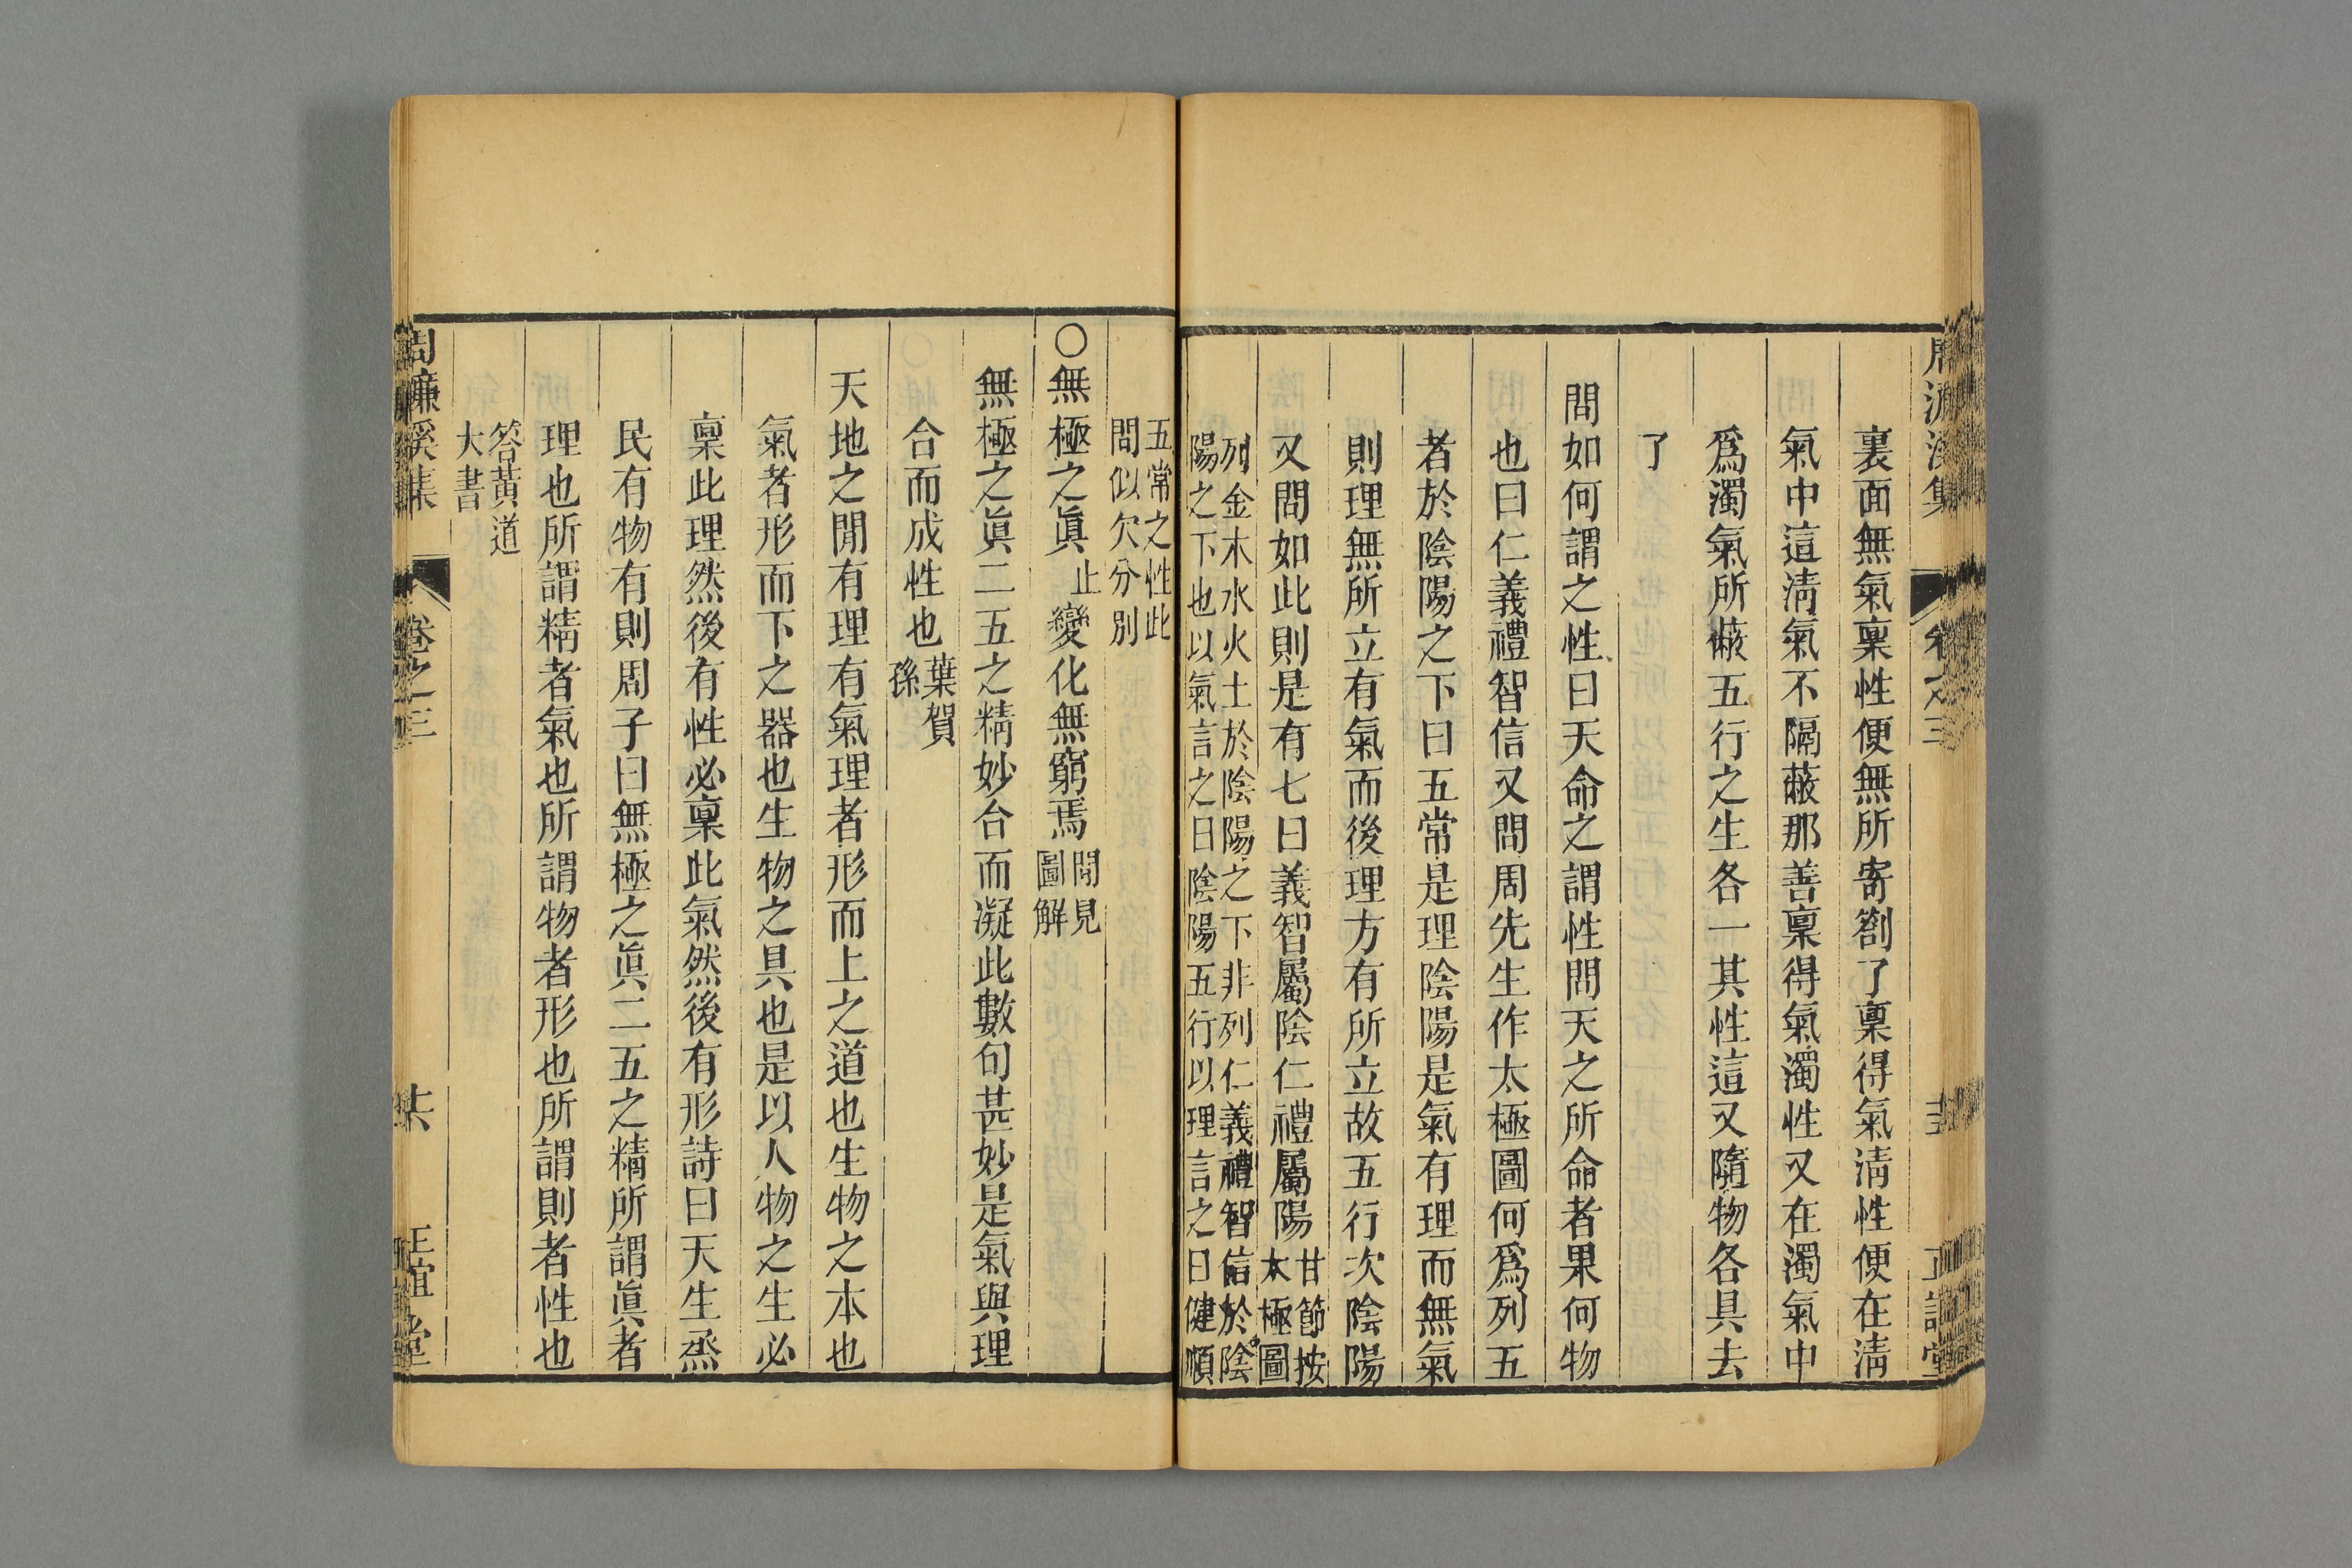 裏面無氣稟性便無所寄劄了稟得氣淸性便在淸
氣中這淸氣不隔蔽那善稟得氣濁性又在濁氣中
爲濁氣所蔽五行之生各一其性這又隨物各具去
了
問如何謂之性曰天命之謂性問天之所命者果何物
也曰仁義禮智信又問周先生作太極圖何爲列五
者於陰陽之下曰五常是理陰陽是氣有理而無氣
則理無所立有氣而後理方有所立故五行次陰陽
又問如此則是有七曰義智屬陰仁禮屬陽
甘節按
太極圖
列金木水火土於陰陽之下非列仁義禮智信於陰
陽之下也以氣言之曰陰陽五行以理言之曰健順
五常之性此
問似欠分別
○無極之眞止變化無窮焉
問見
圖解
無極之眞二五之精妙合而凝此數句甚妙是氣與理
合而成性也
葉賀
孫
天地之閒有理有氣理者形而上之道也生物之本也
氣者形而下之器也生物之具也是以人物之生必
稟此理然後有性必稟此氣然後有形詩曰天生烝
民有物有則周子曰無極之眞二五之精所謂眞者
理也所謂精者氣也所謂物者形也所謂則者性也
答黃道
大書
周濂溪集
卷之三
正誼堂